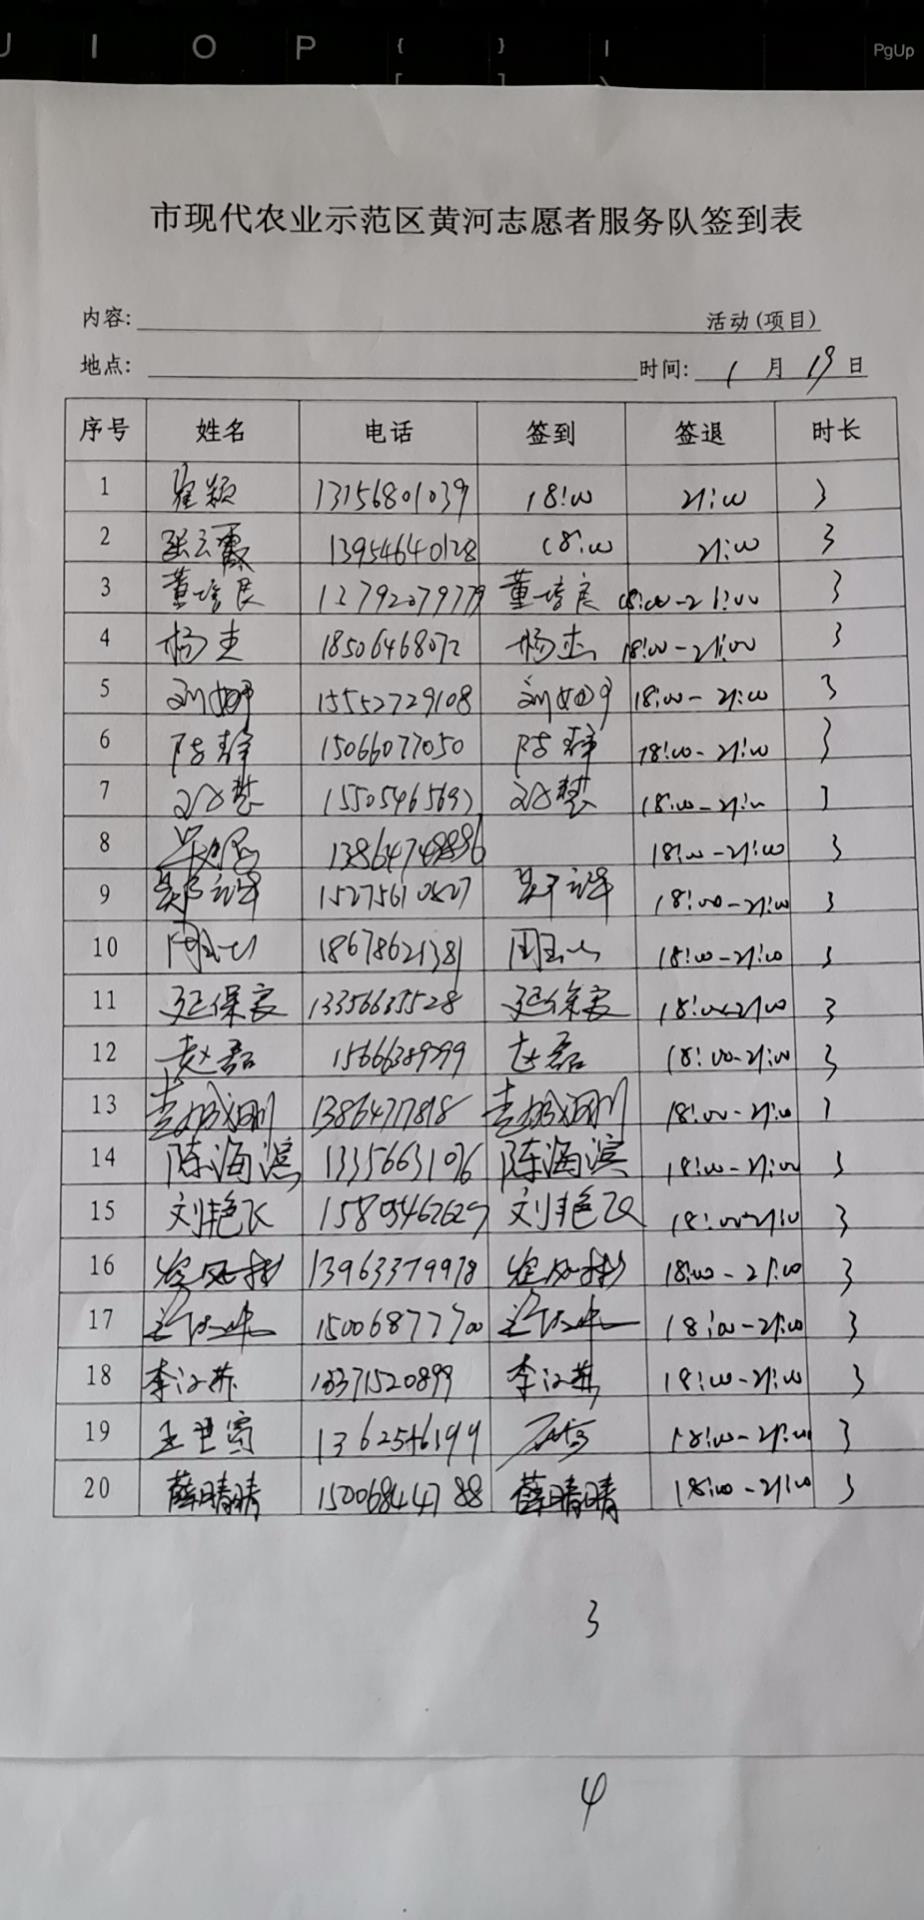 U I O P { } | PgUp
[ ] \
市现代农业示范区黄河志愿者服务队签到表
内容: 活动(项目)
地点: 时间: 1 月 19 日
序号 姓名 电话 签到 签退 时长
1 崔颖 13156801039 18:00 21:00 3
2 张云霞 13954640128 18:00 21:00 3
3 董培良 13792079779 董培良 18:00-21:00 3
4 杨杰 18506468072 杨杰 18:00-21:00 3
5 刘婷 15552729108 刘婷 18:00-21:00 3
6 陈静 15066077050 陈静 18:00-21:00 3
7 慧 慧 18:00-21:00 3
8 18:00-21:00 3
9 郑泽 郑泽 18:00-21:00 3
10 周 18678621381 周 18:00-21:00 3
11 延保家 延保家 18:00-21:00 3
12 赵磊 赵磊 18:00-21:00 3
13 18:00-21:00 3
14 陈海滨 13356631076 陈海滨 18:00-21:00 3
15 刘艳飞 刘艳飞 18:00-21:00 3
16 18:00-21:00 3
17 15006877700 18:00-21:00 3
18 李江燕 李江燕 18:00-21:00 3
19 王世寅 1362546199 18:00-21:00 3
20 薛晴晴 15006844788 薛晴晴 18:00-21:00 3
3
4